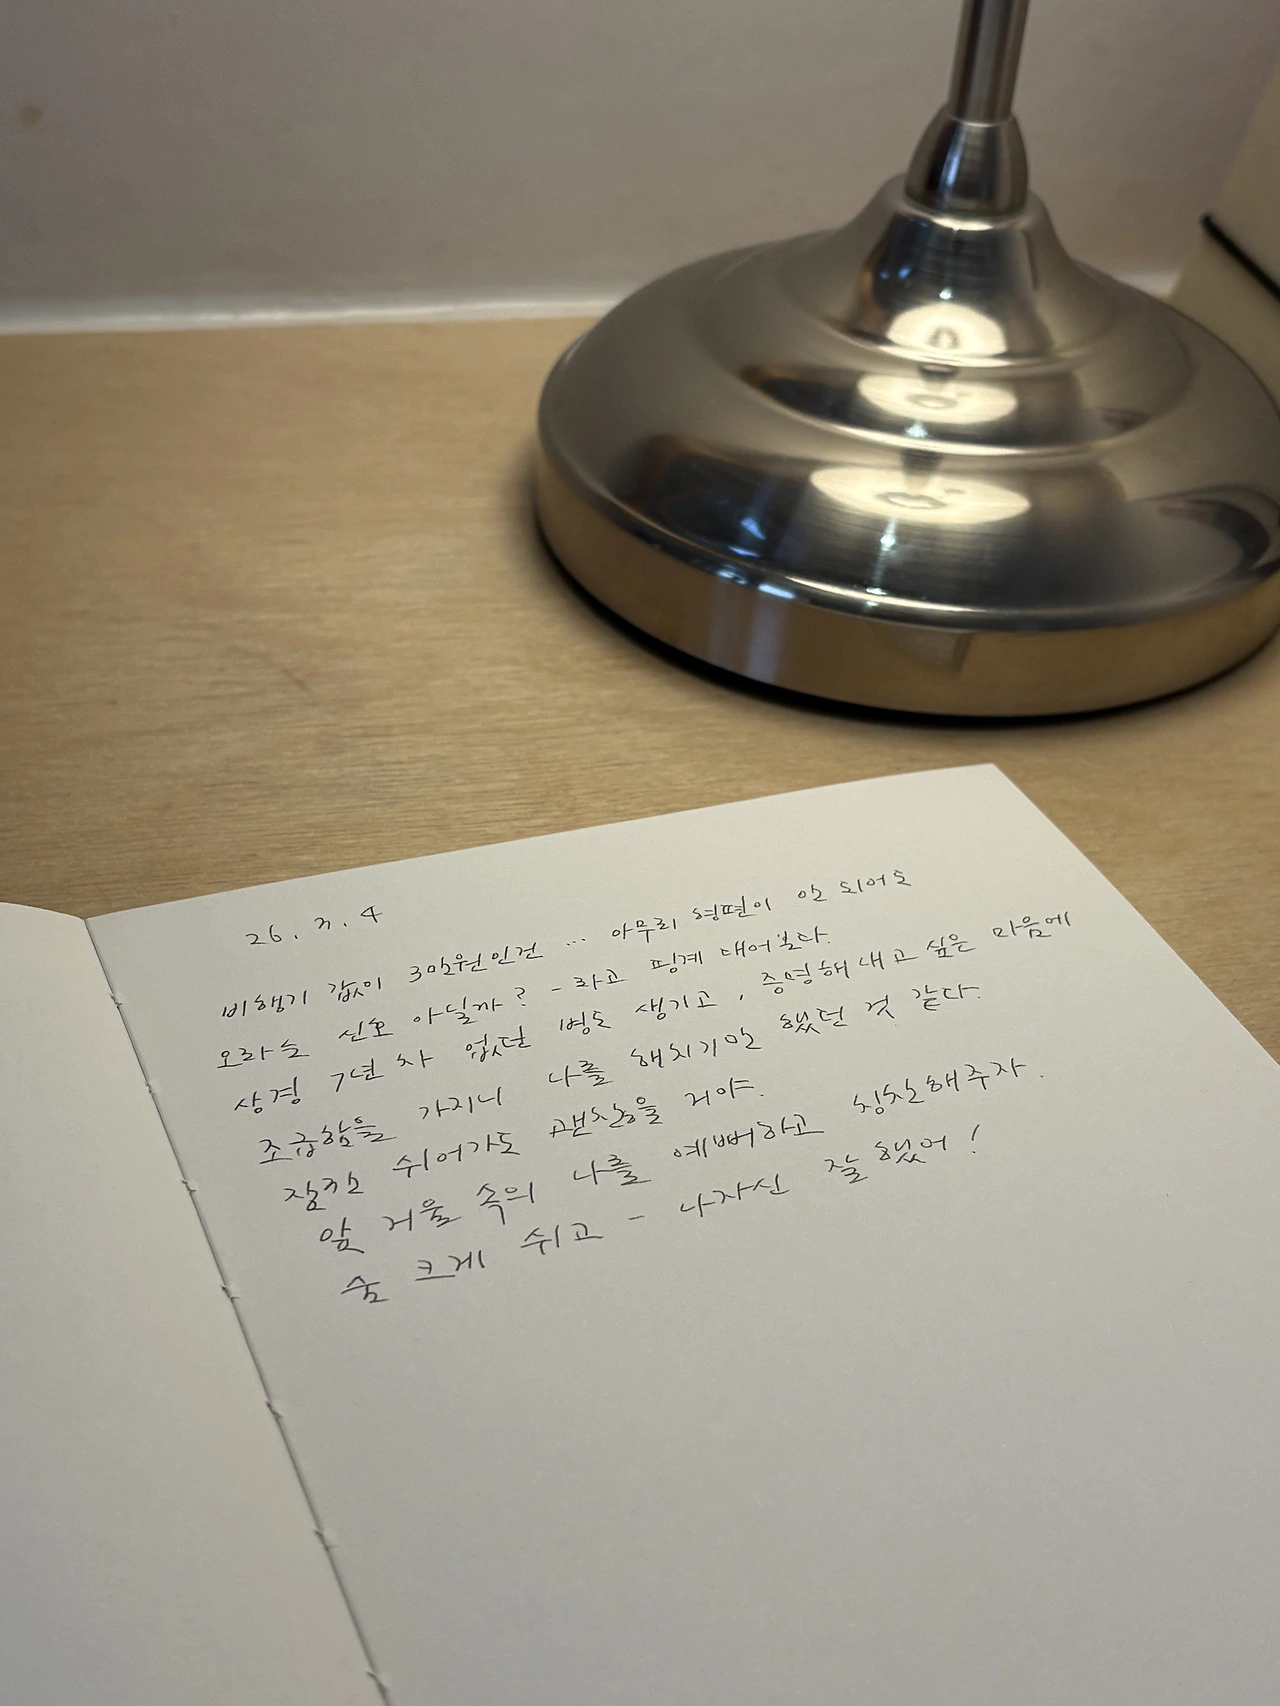 26. 3. 4
비행기 값이 3만원인건 ... 아무리 형편이 안 되어도
오라는 신호 아닐까? - 라고 핑계 대어본다.
상경 7년차 없던 병도 생기고, 증명해내고 싶은 마음에
조급함을 가지니 나를 해치기만 했던 것 같다.
잠깐 쉬어가도 괜찮을 거야.
앞 거울 속의 나를 예뻐하고 칭찬해주자.
숨 크게 쉬고 - 나자신 잘했어!